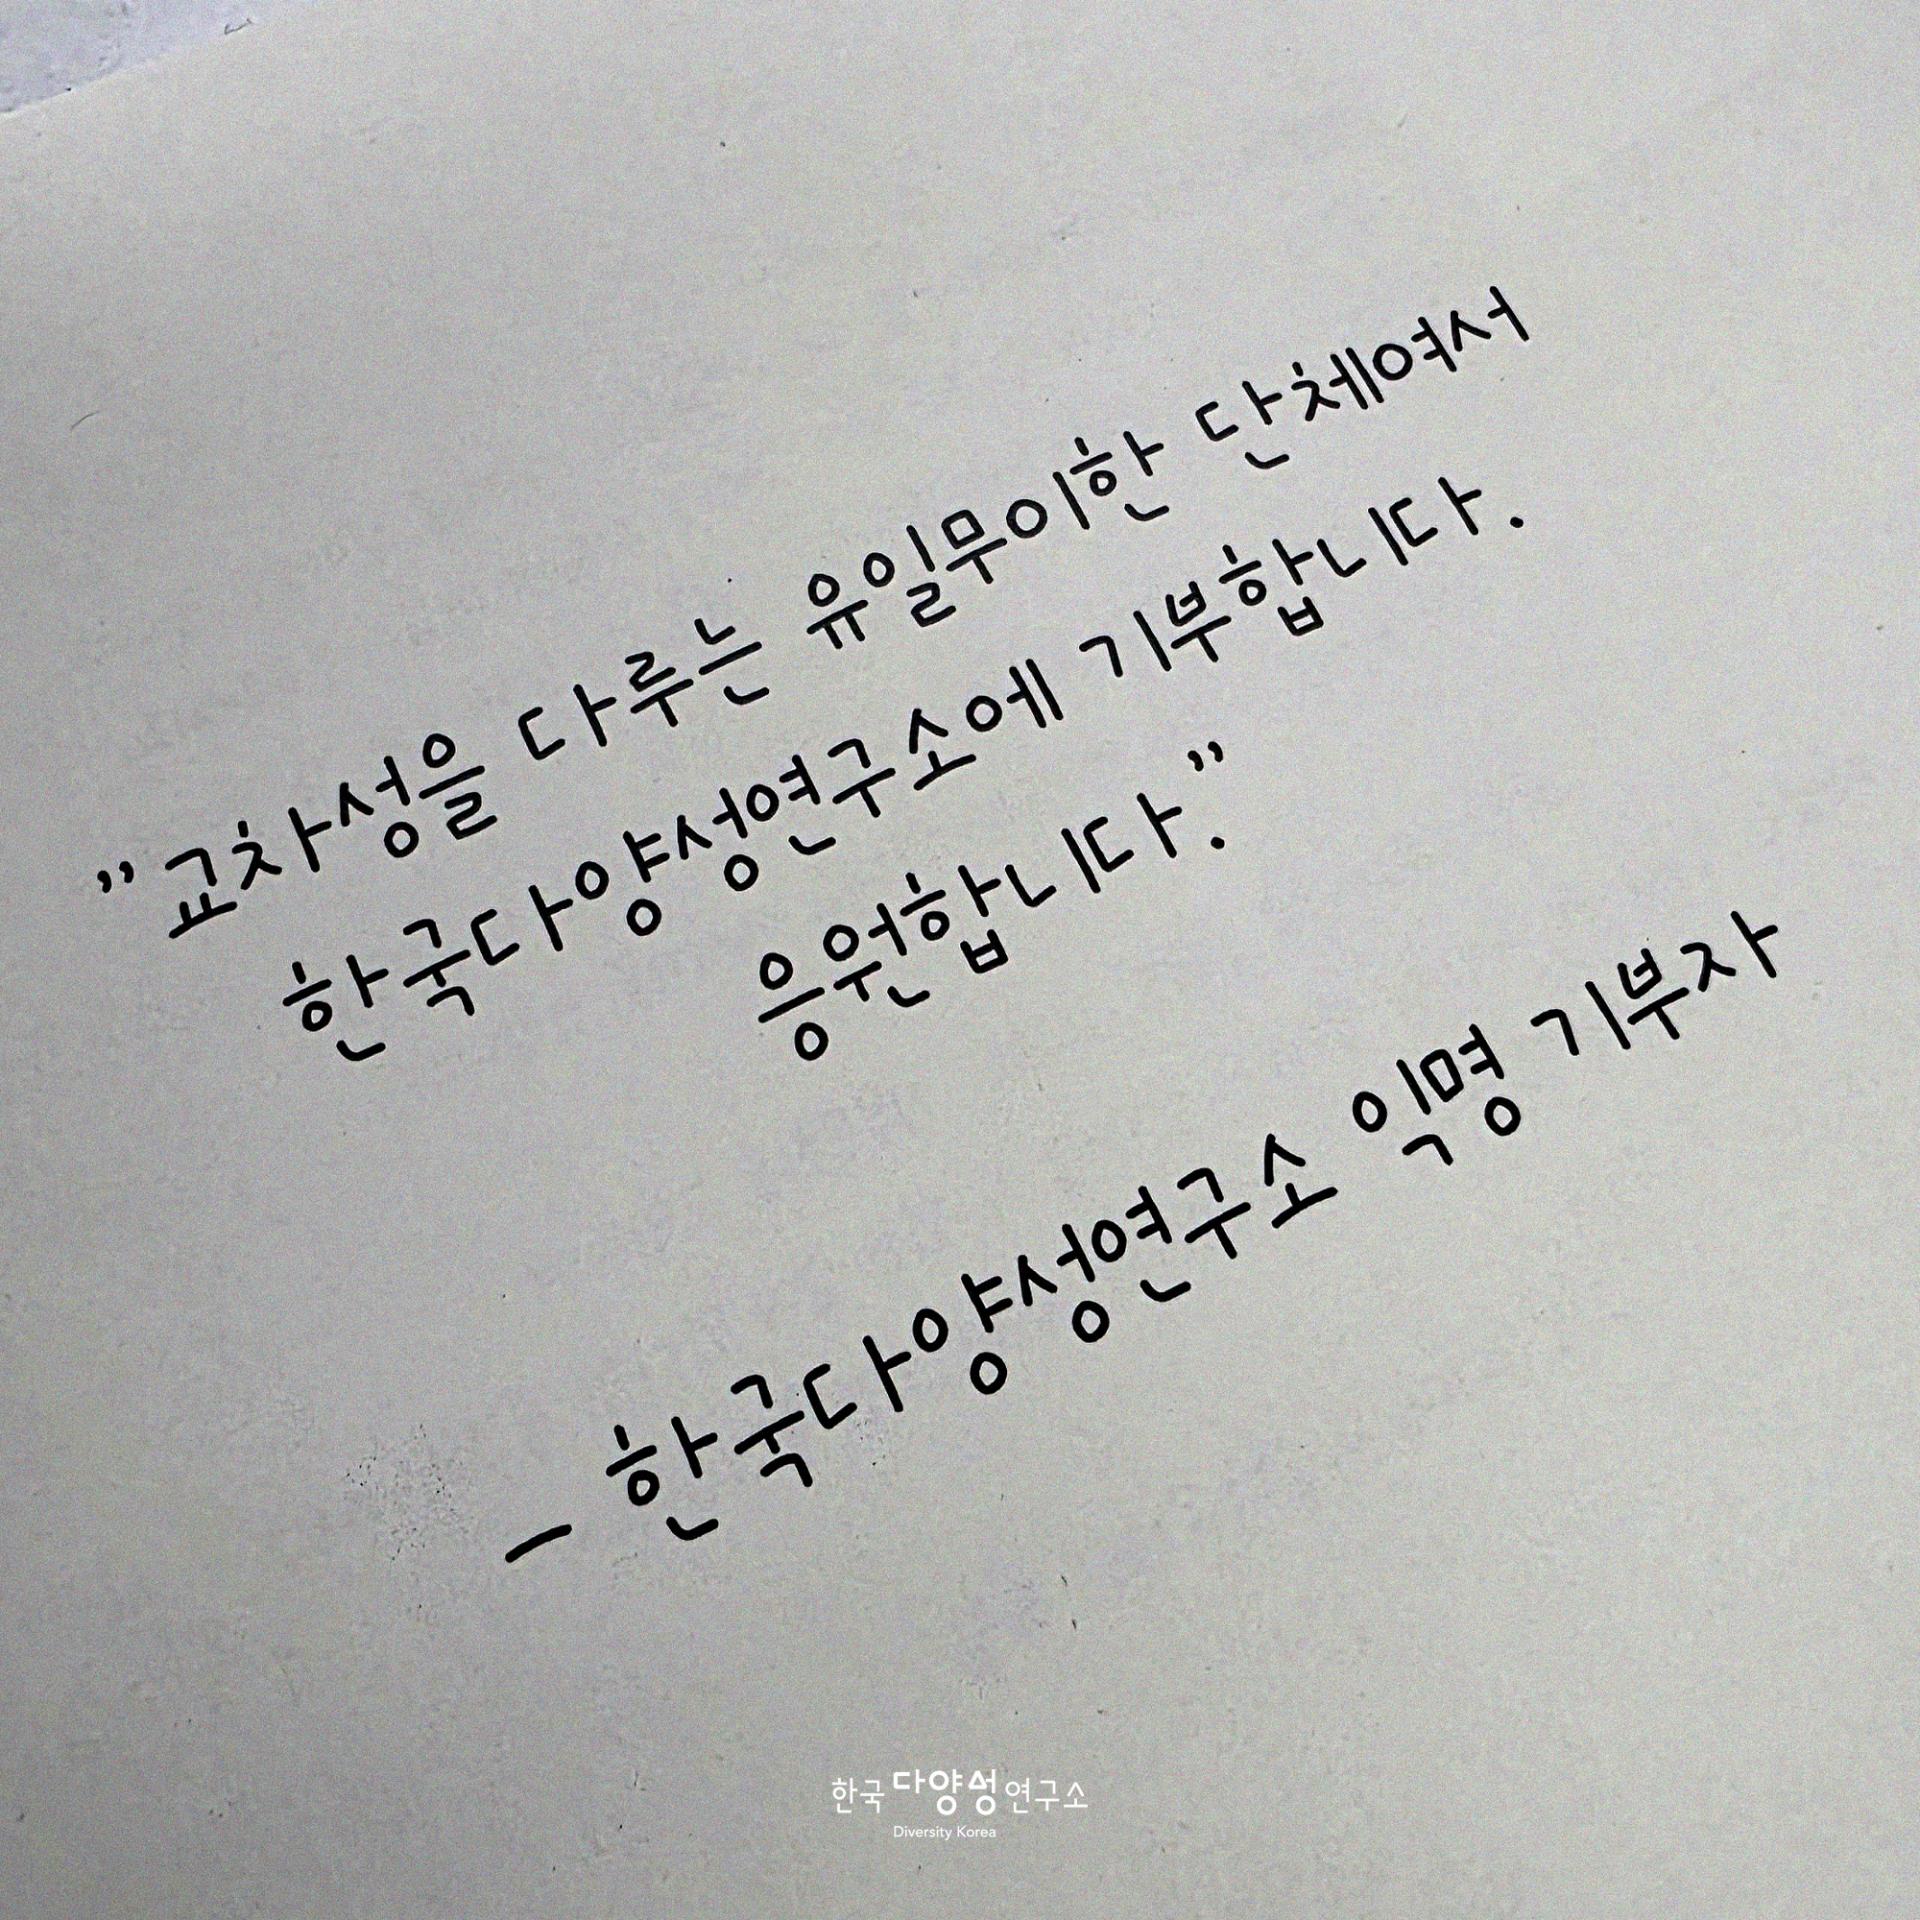 "교차성을 다루는 유일무이한 단체여서
한국다양성연구소에 기부합니다.
응원합니다."
- 한국다양성연구소 익명 기부자
한국다양성연구소
Diversity Korea